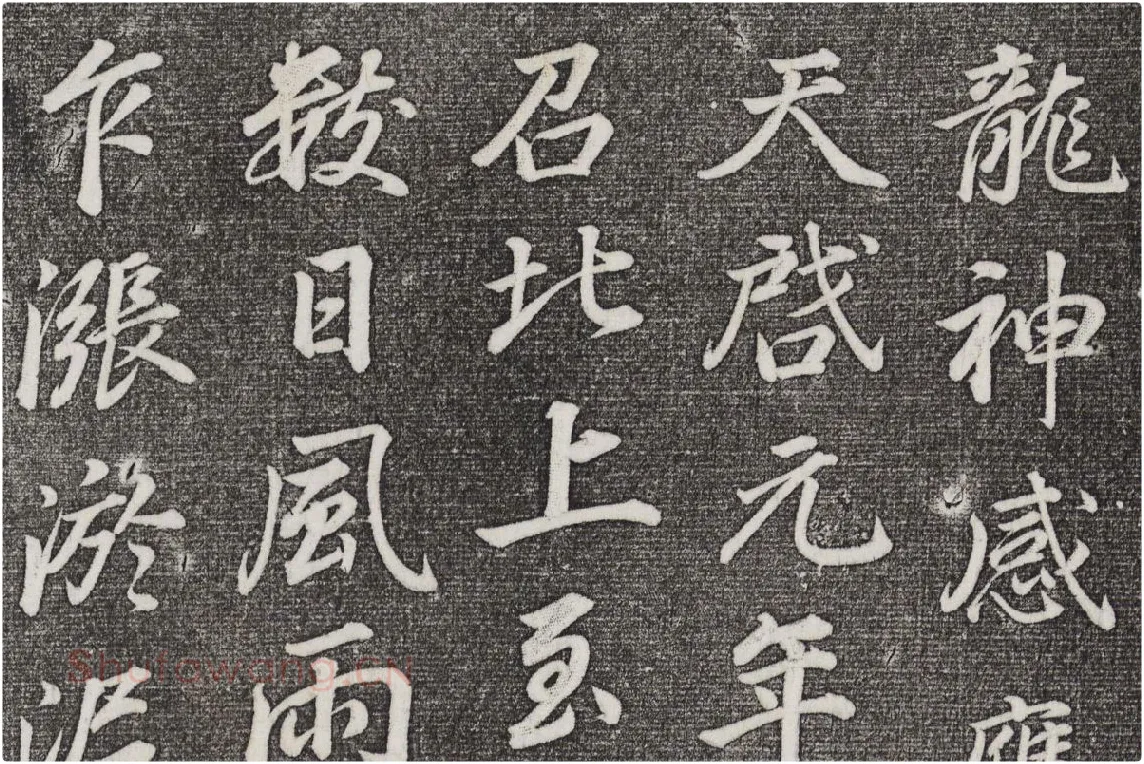 龍神感應
天啓元年
召北上至
数日風雨
乍漲淤泥
Shufawang.CN